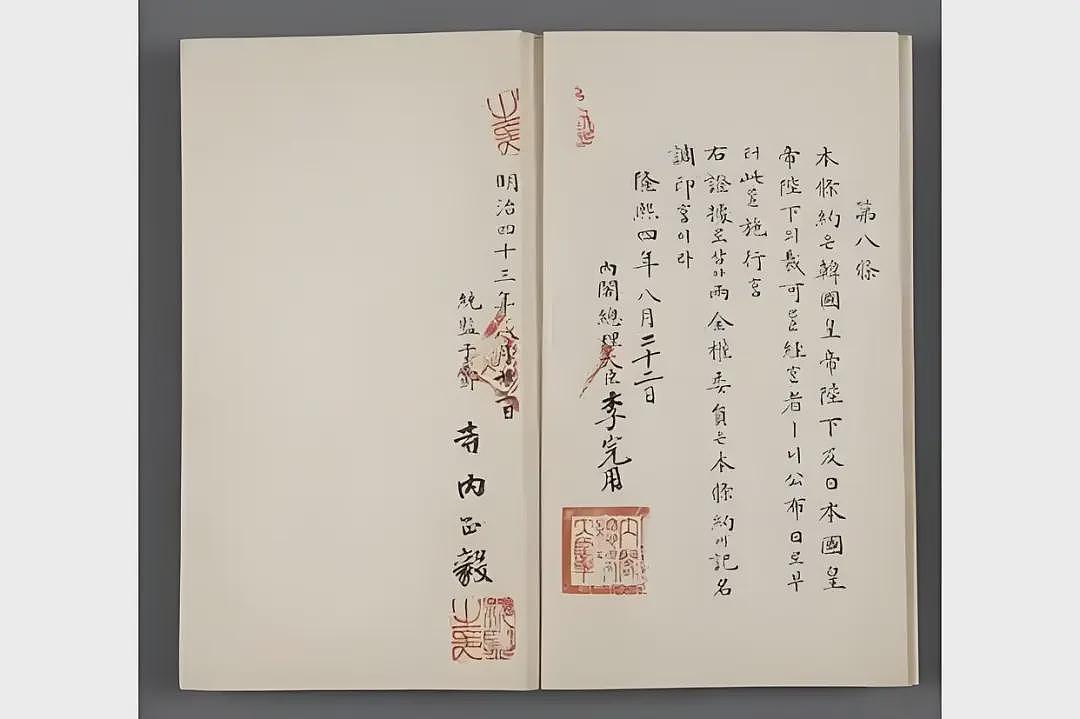 第八條
本條約은韓國皇帝陛下及日本國皇
帝陛下의裁可를經한者ㅣ니公布日로부
터此를施行홈
右證據로삼아兩全權委員은本條約에記名
調印홈이라
隆熙四年八月二十二日
內閣總理大臣李完用
明治四十三年八月二十二日
統監子爵 寺內正毅